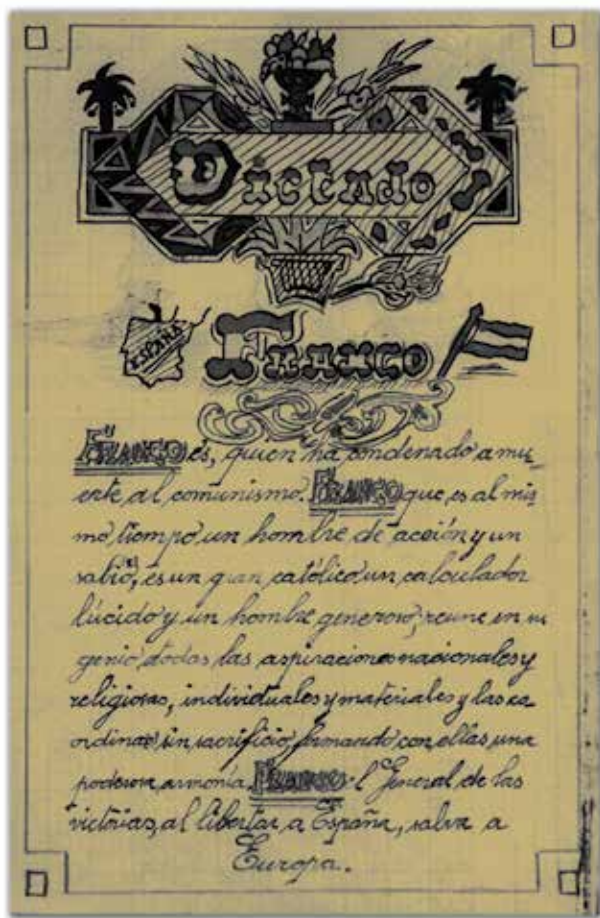 Dictado
ESPAÑA
FRANCO
FRANCO es, quien ha condenado a mu-
erte al comunismo. FRANCO que, es al mis-
mo tiempo un hombre de acción y un
sabio, es un gran católico un calculador
lúcido y un hombre generoso, reune en su
genio todas las aspiraciones nacionales y
religiosas, individuales y materiales y las co
ordina sin sacrificio formando con ellas una
poderosa armonía. FRANCO l General de las
victorias, al libertar a España, salva a
Europa.